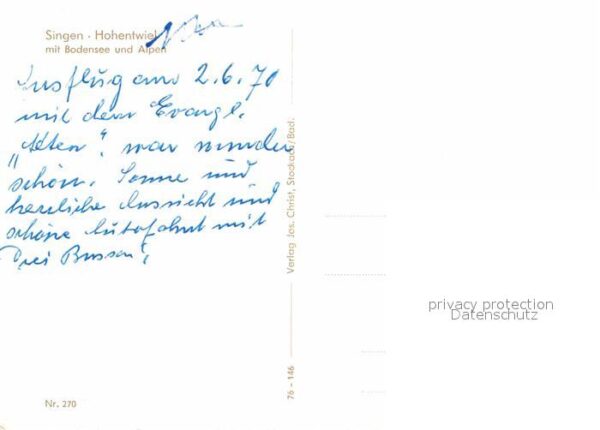 Singen · Hohentwiel
mit Bodensee und Alpen
Ausflug am 2.6.70
mit dem Evangl.
„Alten“. war wunder
schön. Sonne und
herrliche Aussicht und
schöne Autofahrt mit
Drei Bussen,
Verlag Jos. Christ, Stockach/Bad.
76 - 146
Nr. 270
privacy protection
Datenschutz